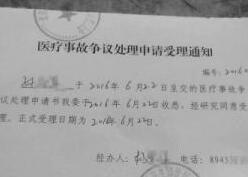 医疗事故争议处理申请受理通知
编号:2016
赵 于 2016年 6月22日呈交的医疗事故争
议处理申请书我委于2016年 6月22日收悉。经研究同意受
理。正式受理日期为 2016年 6月22日。
经办人: 电话:8943